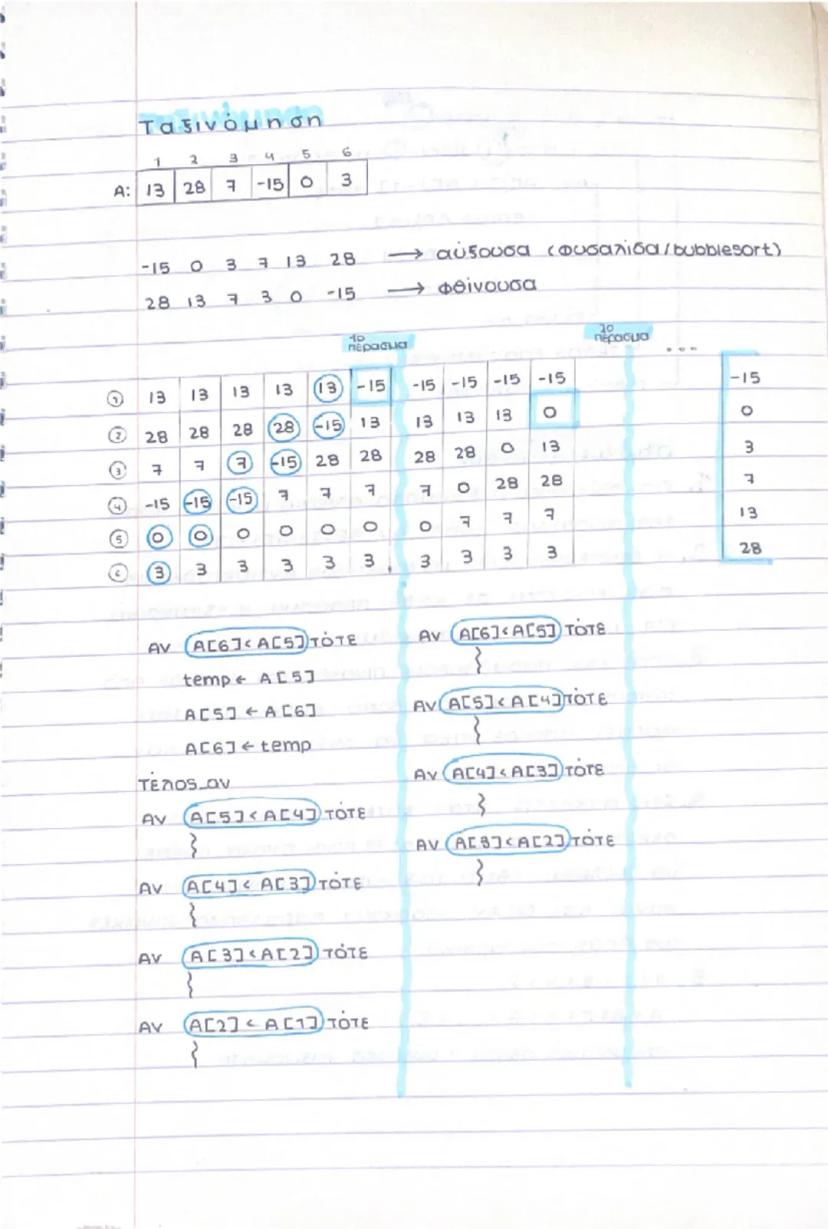 Ταξινόμηση
1 2 3 4 5 6
A: 13 28 7 -15 0 3
-15 0 3 7 13 28 → αύξουσα (φυσαλίδα/bubblesort)
28 13 7 3 0 -15 → φθίνουσα
1ο πέρασμα 2ο πέρασμα ...
① 13 13 13 13 13 -15 -15 -15 -15 -15 -15
② 28 28 28 28 -15 13 13 13 13 0 0
③ 7 7 7 -15 28 28 28 28 0 13 3
④ -15 -15 -15 7 7 7 7 0 28 28 7
⑤ 0 0 0 0 0 0 0 7 7 7 13
⑥ 3 3 3 3 3 3 3 3 3 3 28
Αν A[6]<A[5] τότε
temp ← A[5]
A[5] ← A[6]
A[6] ← temp
Τέλος_αν
Αν A[5]<A[4] τότε
Αν A[4]<A[3] τότε
Αν A[3]<A[2] τότε
Αν A[2]<A[1] τότε
Αν A[6]<A[5] τότε
Αν A[5]<A[4] τότε
Αν A[4]<A[3] τότε
Αν A[3]<A[2] τότε